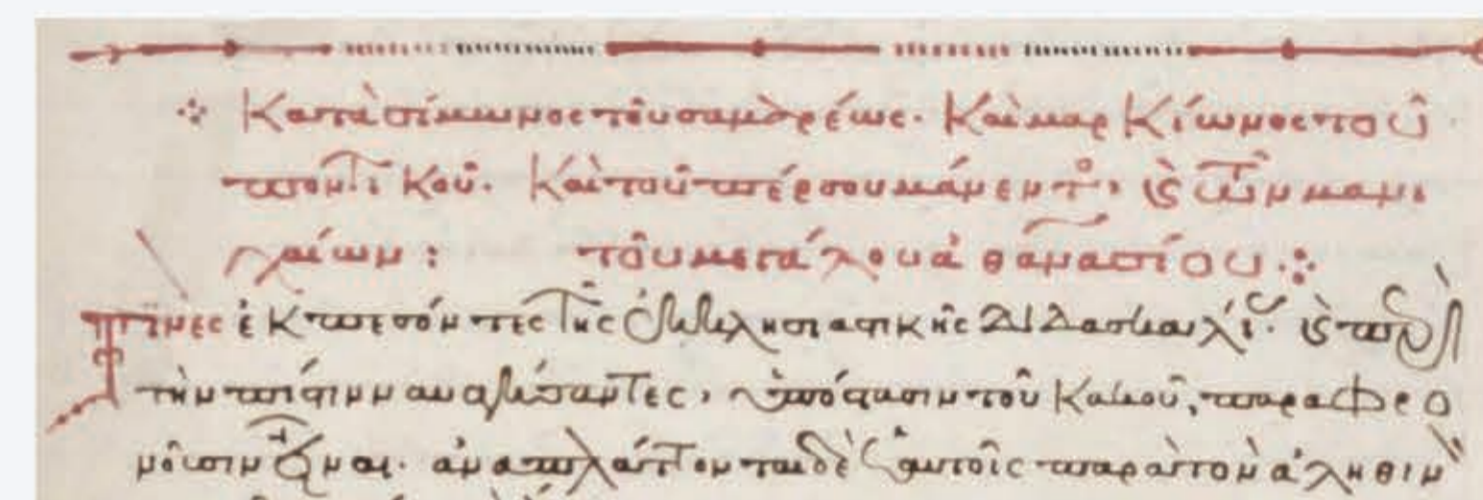 Κατὰ σίμωνος τοῦ σαμαρέως. Καὶ μαρκίωνος τοῦ
ποντικοῦ. Καὶ τοῦ πέρσου μάνεντος, καὶ τῶν μανι
χαίων: τοῦ μεγάλου ἀθανασίου
Τινὲς ἐκπεσόντες τῆς ἐκκλησιαστικῆς διδασκαλίας. καὶ περὶ
τὴν πίστιν ναυαγήσαντες, ὑπόστασιν τοῦ κακοῦ, παραφρο
νοῦσιν εἶναι. ἀναπλάττονται δὲ ἑαυτοῖς παρὰ τὸν ἀληθινὸν